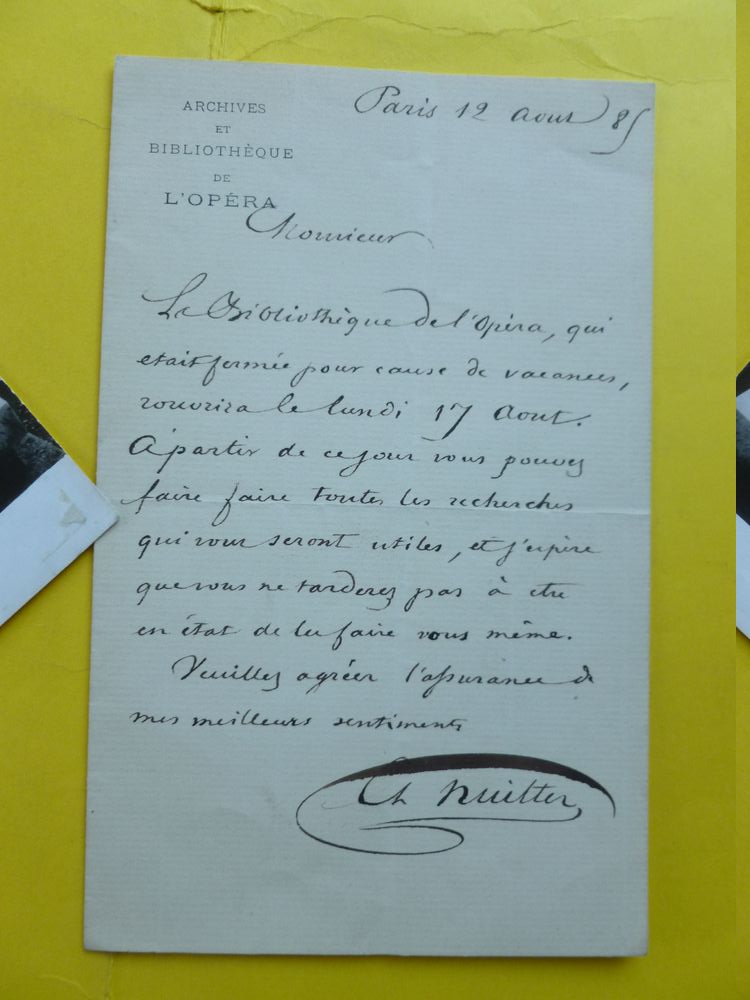 ARCHIVES
ET
BIBLIOTHÈQUE
DE
L'OPÉRA
Paris 12 aout 85
Monsieur
La Bibliothèque de l'Opéra, qui
etait fermée pour cause de vacances,
rouvrira le lundi 17 Aout.
A partir de ce jour vous pouvez
faire faire toutes les recherches
qui vour seront utiles, et j'espère
que vous ne tarderez pas à etre
en état de les faire vous même.
Veuillez agréer l'assurance de
mes meilleurs sentiments
Ch Nuitter